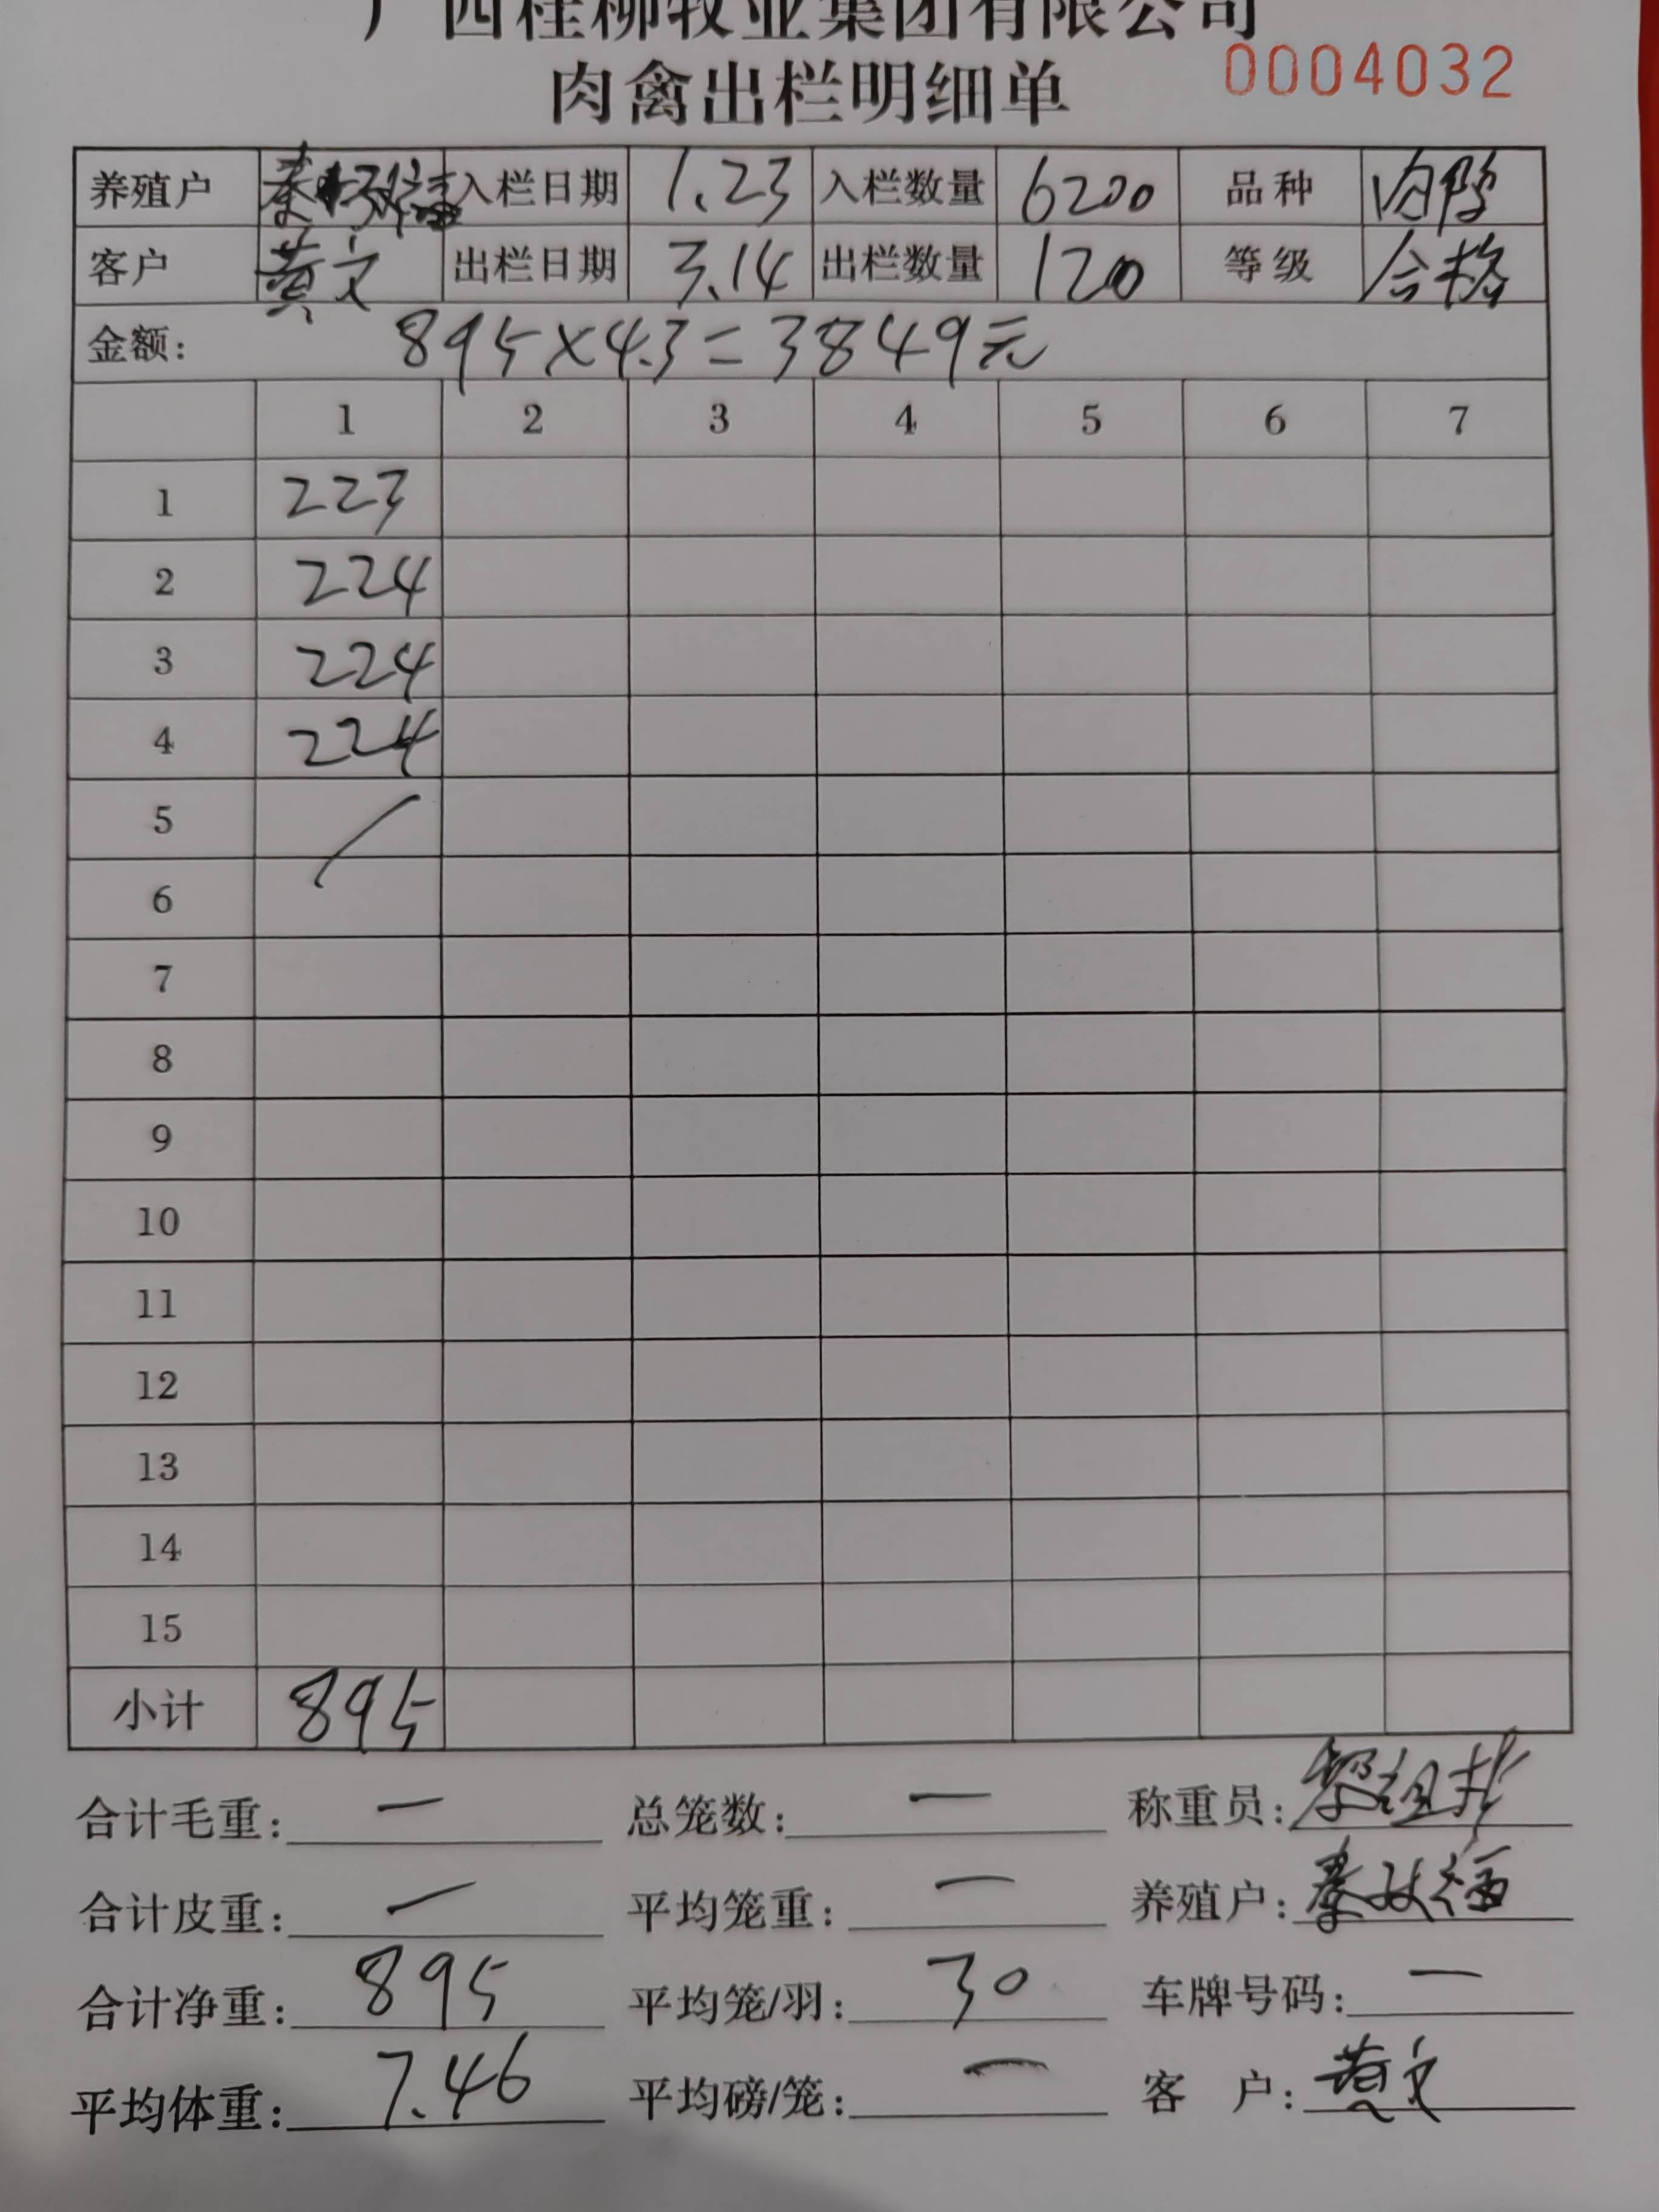 广西桂柳牧业集团有限公司
肉禽出栏明细单 0004032
养殖户 秦 入栏日期 1.23 入栏数量 6200 品种 肉鸭
客户 黄文 出栏日期 3.14 出栏数量 120 等级 合格
金额: 895×4.3=3849元
1 2 3 4 5 6 7
1 223
2 224
3 224
4 224
5
6
7
8
9
10
11
12
13
14
15
小计 895
合计毛重: 一 总笼数: 一 称重员:
合计皮重: 一 平均笼重: 一 养殖户: 秦
合计净重: 895 平均笼/羽: 30 车牌号码: 一
平均体重: 7.46 平均磅/笼: 一 客 户: 黄文